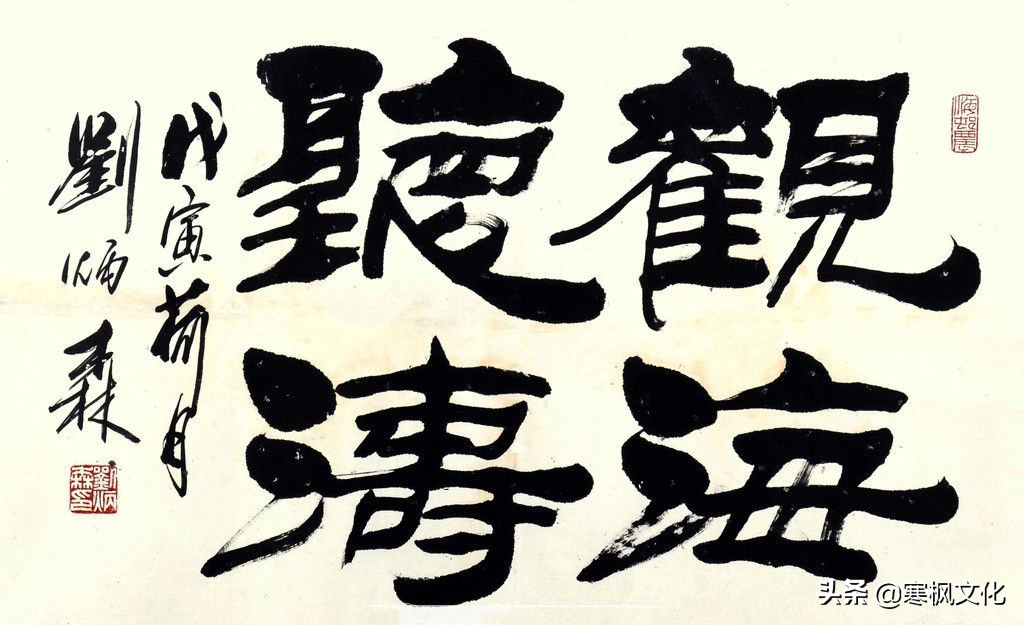 觀海
聽濤
戊寅荷月
劉炳森
劉炳森印
头条 @寒枫文化